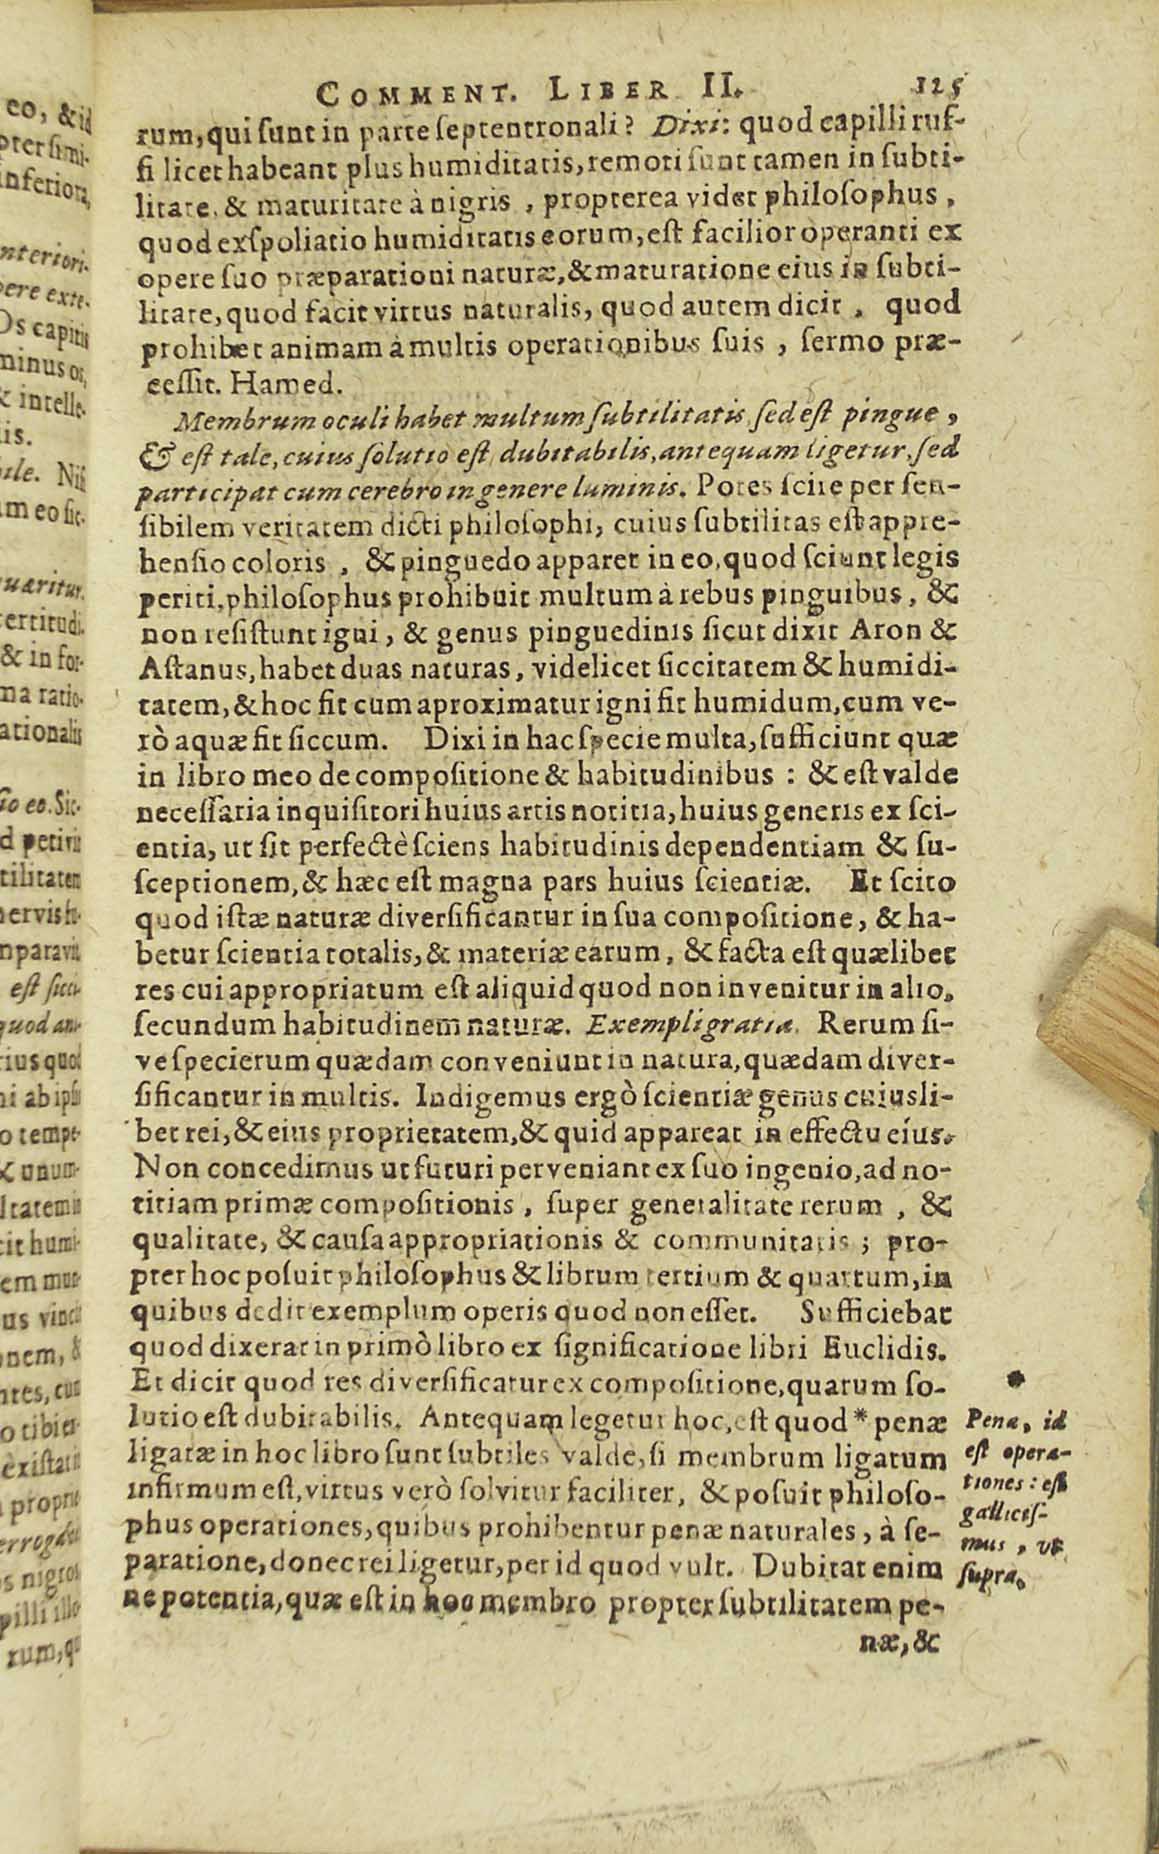 COMMENT. LIBER II. 125
rum, qui sunt in parte septentronali? Dixi: quod capilli ruf-
fi licet habeant plus humiditatis, remoti sunt tamen in subti-
litate, & maturitate à nigris , propterea videt philosophus ,
quod exspoliatio humiditatis eorum, est facilior operanti ex
opere suo præparationi naturæ, & maturatione eius in subti-
litate, quod facit virtus naturalis, quod autem dicit , quod
prohibet animam à multis operationibus suis , sermo præ-
cessit. Hamed.
Membrum oculi habet multum subtilitatis, sed est pingue ,
& est tale, cuius solutio est dubitabilis, antequam ligetur, sed
participat cum cerebro in genere luminis. Potes scire per sen-
sibilem veritatem dicti philosophi, cuius subtilitas est appre-
hensio coloris , & pinguedo apparet in eo, quod sciunt legis
periti, philosophus prohibuit multum à rebus pinguibus , &
non resistunt igni , & genus pinguedinis sicut dixit Aron &
Astanus, habet duas naturas , videlicet siccitatem & humidi-
tatem, & hoc fit cum aproximatur igni fit humidum, cum ve-
rò aquæ fit siccum. Dixi in hac specie multa, sufficiunt quæ
in libro meo de compositione & habitudinibus : & est valde
necessaria inquisitori huius artis notitia, huius generis ex sci-
entia, ut sit perfectè sciens habitudinis dependentiam & su-
sceptionem, & hæc est magna pars huius scientiæ. Et scito
quod istæ naturæ diversificantur in sua compositione, & ha-
betur scientia totalis, & materiæ earum , & facta est quælibet
res cui appropriatum est aliquid quod non invenitur in alio,
secundum habitudinem naturæ. Exempli gratia. Rerum si-
ve specierum quædam conveniunt in natura, quædam diver-
sificantur in multis. Indigemus ergò scientiæ genus cuiusli-
bet rei, & eius proprietatem, & quid appareat in effectu eius.
Non concedimus ut futuri perveniant ex suo ingenio, ad no-
titiam primæ compositionis , super generalitate rerum , &
qualitate, & causa appropriationis & communitatis ; pro-
pter hoc posuit philosophus & librum tertium & quartum, in
quibus dedit exemplum operis quod non esset. Sufficiebat
quod dixerat in primò libro ex significatione libri Euclidis.
Et dicit quod res diversificatur ex compositione, quarum so-
lutio est dubitabilis. Antequam legetur hoc, est quod * penæ
ligatæ in hoc libro sunt subtiles valde, si membrum ligatum
infirmum est, virtus verò solvitur faciliter, & posuit philoso-
phus operationes, quibus prohibentur penæ naturales , à se-
paratione, donec rei ligetur, per id quod vult. Dubitat enim
ne potentia, quæ est in hoc membro propter subtilitatem pe-
næ, &
*
Pena, id
est opera-
tiones : est
gallicis-
mus , ut
supra.